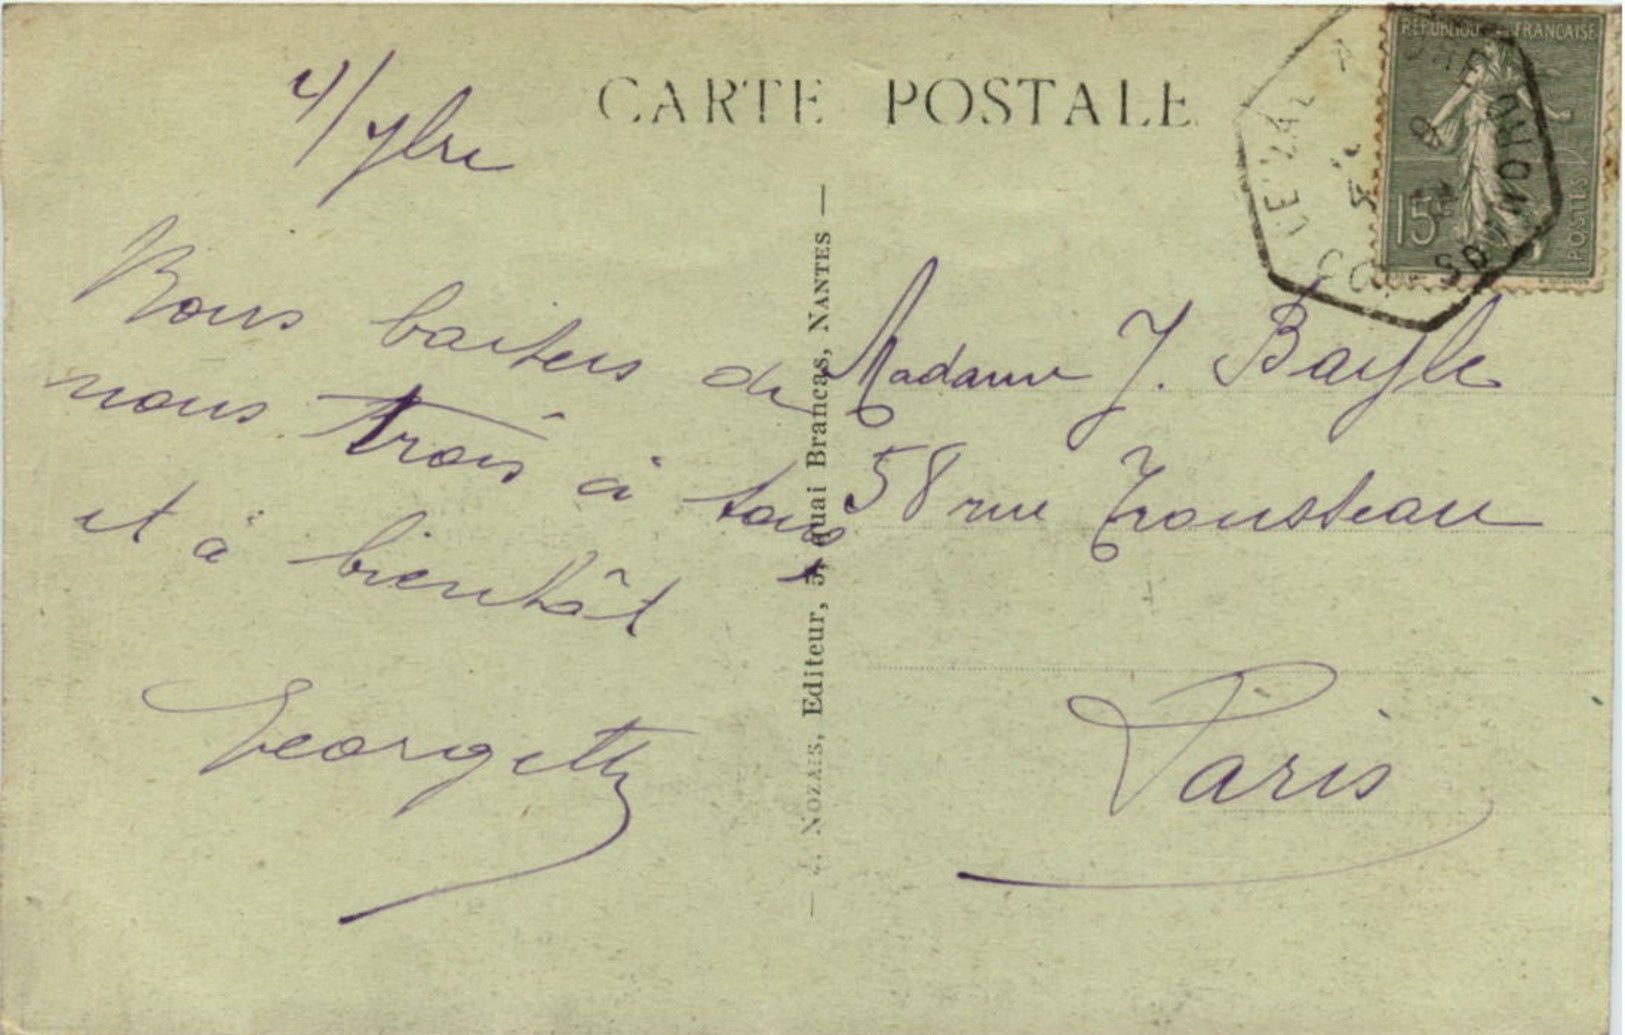 CARTE POSTALE
RÉPUBLIQUE FRANÇAISE
15c
POSTES
4/7bre
Bons baisers de
nous trois à tous
et à bientôt
Georgette
Nozais, Editeur, 5, quai Brancas, NANTES
Madame J. Bayle
58 rue Trousseau
Paris